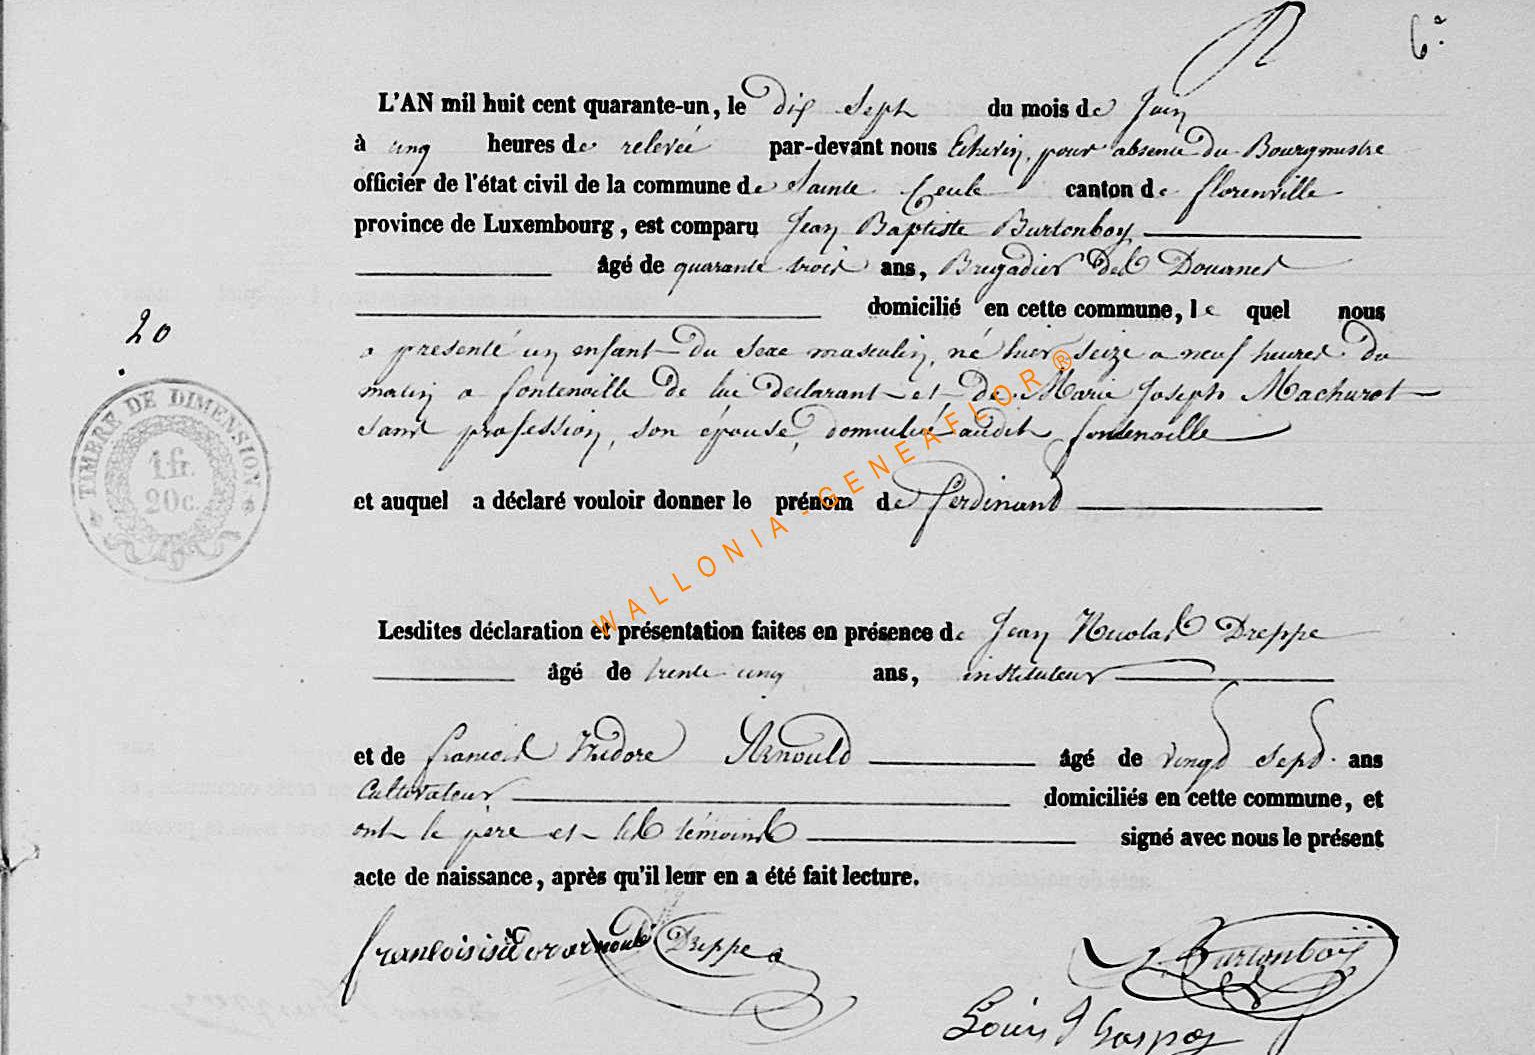 6.e
L'AN mil huit cent quarante-un, le dix sept du mois de Juin
à cinq heures de relevée par-devant nous Echevin, pour absence du Bourgmestre
officier de l'état civil de la commune de Sainte Cecile canton de florenville
province de Luxembourg, est comparu Jean Baptiste Burtonboy
âgé de quarante trois ans, Brigadier des Douanes
domicilié en cette commune, le quel nous
20
a présenté un enfant du sexe masculin, né hier seize a neuf heures du
matin a fontenoille de lui déclarant et de Marie Joseph Machurot
sans profession, son épouse, domiciliée audit fontenoille
TIMBRE DE DIMENSION
1 fr.
20 c.
et auquel a déclaré vouloir donner le prénom de ferdinand
WALLONIA-GENEAFLOR®
Lesdites déclaration et présentation faites en présence de Jean Nicolas Dreppe
âgé de trente cinq ans, instituteur
et de francois Isidore Arnould âgé de vingt sept ans
Cultivateur domiciliés en cette commune, et
ont le père et les témoins signé avec nous le présent
acte de naissance, après qu'il leur en a été fait lecture.
francois isidor arnould Dreppe Burtonboy
Louis